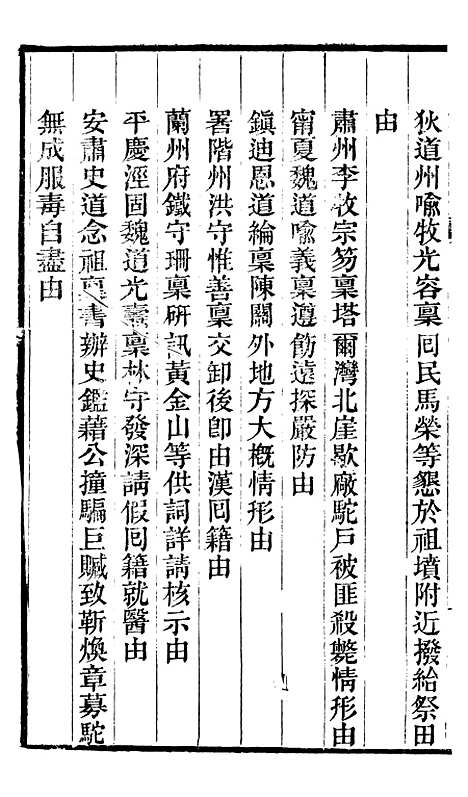 狄道州喩牧光容稟囘民馬榮等懇於祖墳附近撥給祭田
由
肅州李牧宗笏稟塔爾灣北崖歇廠駝戶被匪殺斃情形由
甯夏魏道喩義稟遵飭遠探嚴防由
鎭迪恩道綸稟陳關外地方大槪情形由
署階州洪守惟善稟交卸後卽由漢囘籍由
蘭州府鐵守珊稟硏訊黃金山等供詞詳請核示由
平慶涇固魏道光燾稟林守發深請假囘籍就醫由
安肅史道念祖稟書辦史鑑藉公撞騙巨贓致靳煥章募駝
無成服毒自盡由